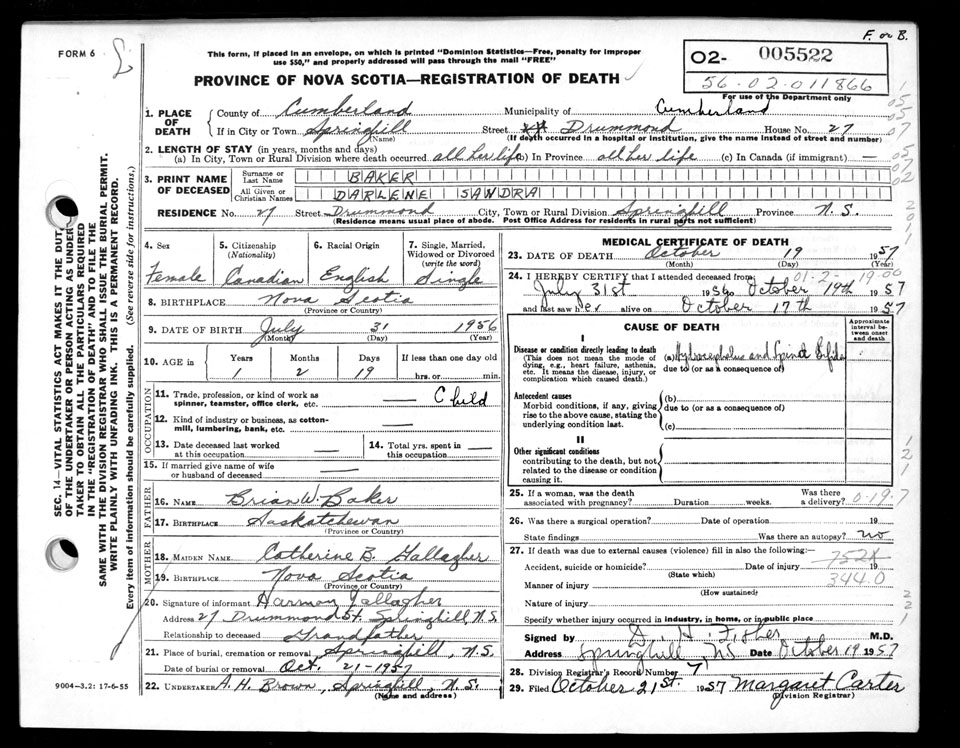 F. or B.
FORM 6
This form, if placed in an envelope, on which is printed "Dominion Statistics—Free, penalty for improper
use $50," and properly addressed will pass through the mail "FREE"
PROVINCE OF NOVA SCOTIA—REGISTRATION OF DEATH
O2- 005522
56.02.011866
For use of the Department only
1. PLACE OF DEATH
County of Cumberland Municipality of Cumberland
If in City or Town Springhill Street Drummond House No. 27
(Name) (If death occurred in a hospital or institution, give the name instead of street and number)
2. LENGTH OF STAY (in years, months and days)
(a) In City, Town or Rural Division where death occurred all her life (b) In Province all her life (c) In Canada (if immigrant) —
3. PRINT NAME OF DECEASED
Surname or Last Name BAKER
All Given or Christian Names DARLENE SANDRA
RESIDENCE No. 27 Street Drummond City, Town or Rural Division Springhill Province N.S.
(Residence means usual place of abode. Post Office Address for residents in rural parts not sufficient)
4. Sex
Female
5. Citizenship
(Nationality)
Canadian
6. Racial Origin
English
7. Single, Married, Widowed or Divorced
(write the word)
Single
8. BIRTHPLACE Nova Scotia
(Province or Country)
9. DATE OF BIRTH July 31 1956
(Month) (Day) (Year)
10. AGE in Years Months Days If less than one day old
1 2 19 hrs. or min.
OCCUPATION
11. Trade, profession, or kind of work as
spinner, teamster, office clerk, etc. — Child
12. Kind of industry or business, as cotton-
mill, lumbering, bank, etc. —
13. Date deceased last worked
at this occupation —
14. Total yrs. spent in
this occupation —
15. If married give name of wife
or husband of deceased —
FATHER
16. NAME Brian W. Baker
17. BIRTHPLACE Saskatchewan
(Province or Country)
MOTHER
18. MAIDEN NAME Catherine B. Gallagher
19. BIRTHPLACE Nova Scotia
(Province or Country)
20. Signature of informant Harmon Gallagher
Address 27 Drummond St. Springhill, N.S.
Relationship to deceased Grandfather
21. Place of burial, cremation or removal Springhill, N.S.
Date of burial or removal Oct. 21-1957
22. UNDERTAKER A. H. Brown, Springhill, N.S.
(Name and address)
MEDICAL CERTIFICATE OF DEATH
23. DATE OF DEATH October 19 1957
(Month) (Day) (Year)
01-2-19:00
24. I HEREBY CERTIFY that I attended deceased from:
July 31st 1956 to October 19th 1957
and last saw her alive on October 17th 1957
CAUSE OF DEATH
Approximate interval between onset and death
I
Disease or condition directly leading to death
(This does not mean the mode of dying, e.g., heart failure, asthenia, etc. It means the disease, injury, or complication which caused death.)
(a) Hydrocephalus and Spina Bifida
due to (or as a consequence of)
Antecedent causes
Morbid conditions, if any, giving rise to the above cause, stating the underlying condition last.
(b)
due to (or as a consequence of)
(c)
II
Other significant conditions
contributing to the death, but not related to the disease or condition causing it.
25. If a woman, was the death
associated with pregnancy? Duration weeks. Was there a delivery? 0-19-7
26. Was there a surgical operation? Date of operation 19
State findings Was there an autopsy? no
27. If death was due to external causes (violence) fill in also the following:—
Accident, suicide or homicide? Date of injury 19
(State which)
752X
344.0
Manner of injury
(How sustained)
Nature of injury
Specify whether injury occurred in industry, in home, or in public place
Signed by D. H. Fisher M.D.
Address Springhill NS Date October 19 1957
28. Division Registrar's Record Number 7
29. Filed October 21st. 1957 Margaret Carter
(Division Registrar)
SEC. 14—VITAL STATISTICS ACT MAKES IT THE DUTY
OF THE UNDERTAKER OR PERSON ACTING AS UNDER-
TAKER TO OBTAIN ALL THE PARTICULARS REQUIRED
IN THE "REGISTRATION OF DEATH" AND TO FILE THE
SAME WITH THE DIVISION REGISTRAR WHO SHALL ISSUE THE BURIAL PERMIT.
WRITE PLAINLY WITH UNFADING INK. THIS IS A PERMANENT RECORD.
Every item of information should be carefully supplied. (See reverse side for instructions.)
9004—3.2: 17-6-55